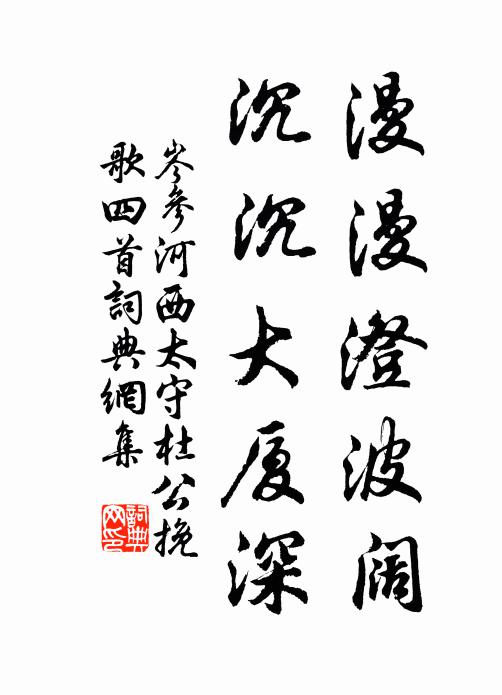 漫漫澄波阔
沉沉大厦深
岑參河西太守杜公挽
歌四首詞典網集
詞典
网印